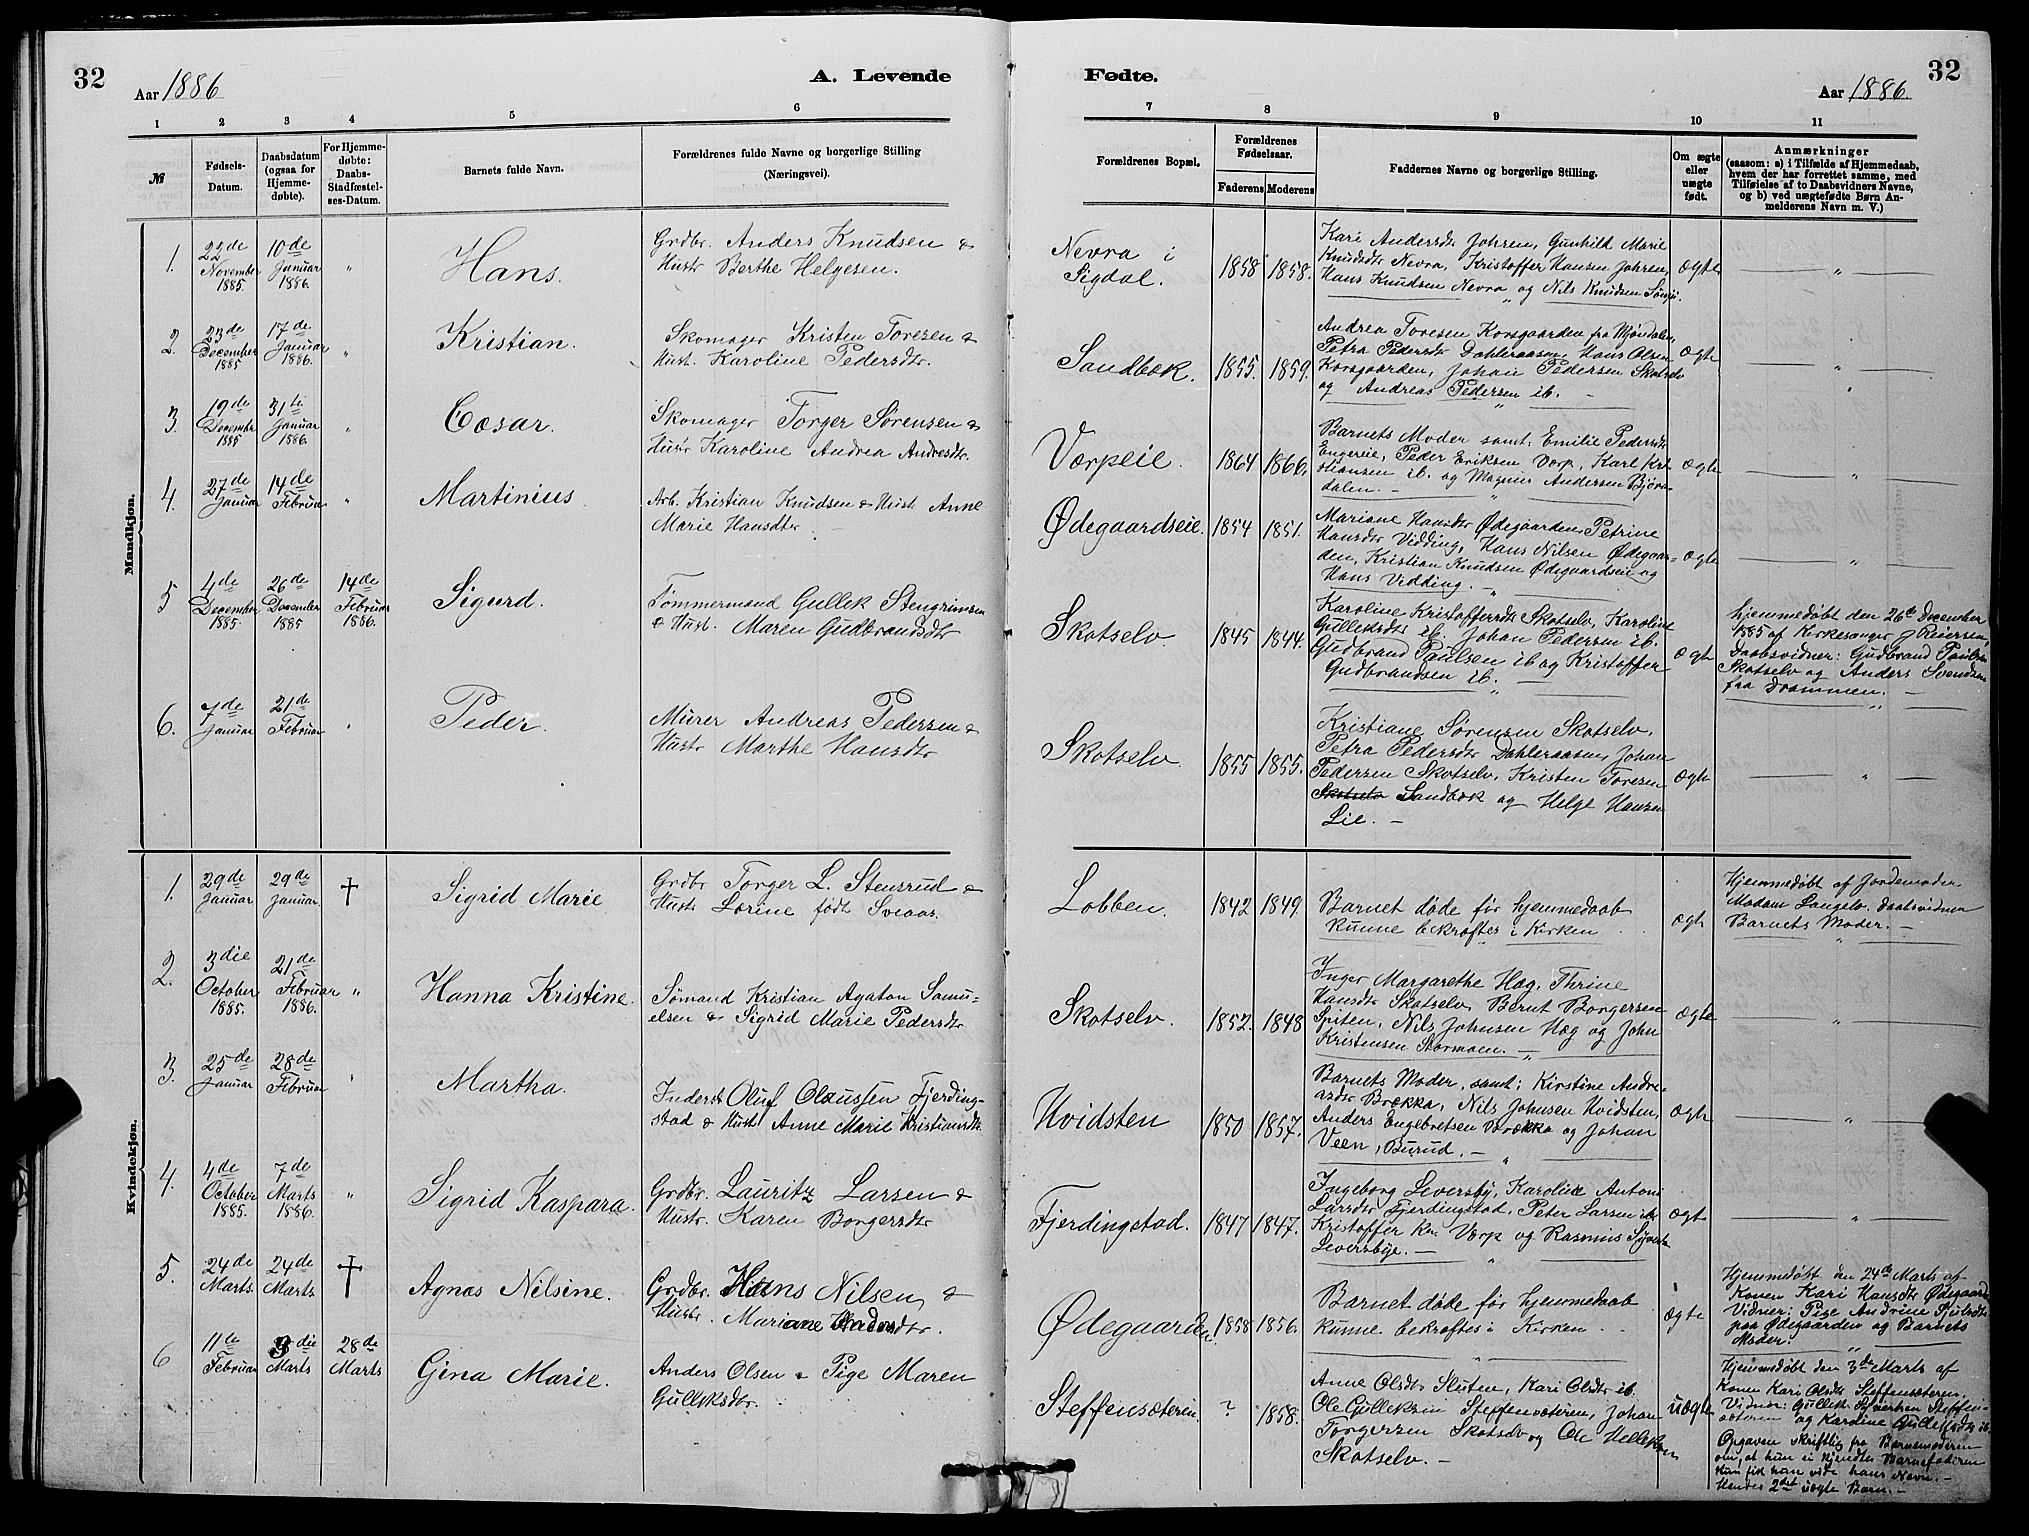 32
Aar 1886
A. Levende
1 2 3 4 5 6
№
Fødsels-
Datum.
Daabsdatum
(ogsaa for
Hjemme-
døbte).
For Hjemme-
døbte:
Daabs-
Stadfæstel-
ses-Datum.
Barnets fulde Navn.
Forældrenes fulde Navne og borgerlige Stilling
(Næringsvei).
Mandkjøn.
1. 22de November 1885. 10de Januar 1886. " Hans.
Grdbr. Anders Knudsen &
Hustr Berthe Helgesen.
2. 23de December 1885 17de Januar 1886. " Kristian.
Skomager Kristen Toresen &
Hust. Karoline Pedersdtr.
3. 19de December 1885 31te Januar 1886. " Cæsar.
Skomager Torger Sørensen &
Hustr Karoline Andrea Andresdtr.
4. 27de Januar 14de Februar " Martinius
Arb. Kristian Knudsen & Hust. Anne
Marie Hansdtr
5 4de December 1885. 26de December 1885 14de Februar 1886. Sigurd.
Tømmermand Gullek Stengrimsen
& Hust. Maren Gudbrandsdtr
6. 7de Januar 21de Februar " Peder.
Murer Andreas Pedersen &
Hustr Marthe Hansdtr
Kvindekjøn.
1. 29de Januar 29de Januar. † Sigrid Marie
Grdbr Torger L. Stensrud &
Hustr Lorine født Sveaas.
2. 3die October 1885. 21de Februar 1886. " Hanna Kristine.
Sømand Kristian Agaton Samu-
elsen & Sigrid Marie Pedersdtr
3. 25de Januar 28de Februar " Martha.
Inderst Oluf Olaussen Fjerding-
stad & Hustr Anne Marie Kristiansdtr
4. 4de October 1885. 7de Marts 1886. " Sigrid Kaspara.
Grdbr. Lauritz Larsen &
Hustr. Karen Borgersdtr
5. 24de Marts. 24de Marts. † Agnes Nilsine.
Grdbr. Hans Nilsen &
Hustr. Mariane
6 11te Februar 3die Marts 28de Marts Gina Marie.
Anders Olsen & Pige Maren
Gulleksdtr.
Fødte.
32
Aar 1886.
7 8 9 10 11
Forældrenes Bopæl.
Forældrenes
Fødselsaar.
Faderens Moderens
Faddernes Navne og borgerlige Stilling.
Om ægte
eller
uægte
født.
Anmærkninger
(saasom: a) i Tilfælde af Hjemmedaab,
hvem der har forrettet samme, med
Tilføielse af to Daabsvidners Navne,
og b) ved uægtefødte Børn An-
melderens Navn m. V.)
Nevra i
Sigdal. 1858 1858. ægte "
Kari Andersdtr Johren, Gunhild Marie
Knudsdtr Nevra, Kristoffer Hansen Johren,
Hans Knudsen Nevra og Nils Knudsen
Sandbæk. 1855. 1859. ægte "
Andrea Toresen Korsgaarden fra Mjøndalen,
Petra Pedersdtr Dahleraasen, Hans Olsen
Korsgaarden, Johan Pedersen Skotselv
og Andreas Pedersen ib.
Værpeie. 1864 1866. ægte "
Barnets Moder samt: Emilie Pedersdtr
Engereie, Peder Eriksen Værp, Karl Kri-
stiansen ib. og Magnus Andersen Bjøra-
dalen.
Ødegaardseie. 1854 1851. ægte "
Mariane Hansdtr Ødegaarden, Petrine
Hansdtr Vidding, Hans Nilsen Ødegaar-
den, Kristian Knudsen Ødegaardseie og
Hans Vidding.
Skotselv 1845 1844. ægte
Karoline Kristoffersdtr Skotselv, Karoline
Gulleksdtr ib. Johan Pedersen ib.
Gudbrand Paulsen ib og Kristoffer
Gudbrandsen ib.
hjemmedøbt den 26de December
1885 af Kirkesanger J Reiersen
Daabsvidner: Gudbrand Paulsen
Skotselv og Anders Svendsen
fra Drammen.
Skotselv. 1855 1855. ægte "
Kristiane Sørensen Skotselv,
Petra Pedersdtr Dahleraasen, Johan
Pedersen Skotselv, Kristen Toresen
Skotselv Sandbæk og Helge Hansen
Lie.
Lobben. 1842 1849. ægte
Barnet døde før hjemmedaab
kunne bekræftes i Kirken
Hjemmedøbt af Jordemoder
Madam Langelv. Daabsvidner
Barnets Moder.
Skotselv. 1852. 1848 ægte "
Inger Margarethe Hæg, Thrine
Hansdtr Skotselv, Bernt Borgersen
Spiten, Nils Johnsen Hæg og John
Kristensen Stormoen.
Hvidsten 1850 1857. ægte "
Barnets Moder, samt: Kirstine Andre-
asdtr Brækka, Nils Johnsen Hvidsten,
Anders Engebretsen Brækka og Johan
Veen, Burud.
Fjerdingstad. 1847 1847. ægte "
Ingeborg Leversby, Karoline Antoni
Larsdtr Fjerdingstad, Peter Larsen ib
Kristoffer Kr. Værp og Rasmus
Leversbye.
Ødegaarden 1858 1856. ægte
Barnet døde før hjemmedaab
kunne bekræftes i Kirken.
Hjemmedøbt den 24de Marts af
Konen Kari Hansdtr Ødegaard
Vidner: Pige Andrine
paa Ødegaarden og Barnets
Moder.
Steffensæteren ? 1858. uægte
Anne Olsdtr Sluten, Kari Olsdtr ib.
Ole Gulleksen Steffensæteren, Johan
Torgersen Skotselv og Ole Helleksen
Skotselv.
Hjemmedøbt den 3de Marts af
Konen Kari Olsdtr Steffensæteren.
Vidner: Gullek Syvertsen Steffen-
sæteren og Karoline Gulleksdtr ib.
Opgaven skriftlig fra Barnemoderen
om, at hun ei kjendte Barnefaderen
Hun fik kun vide hans Navn.
Hendes 2det uægte Barn.